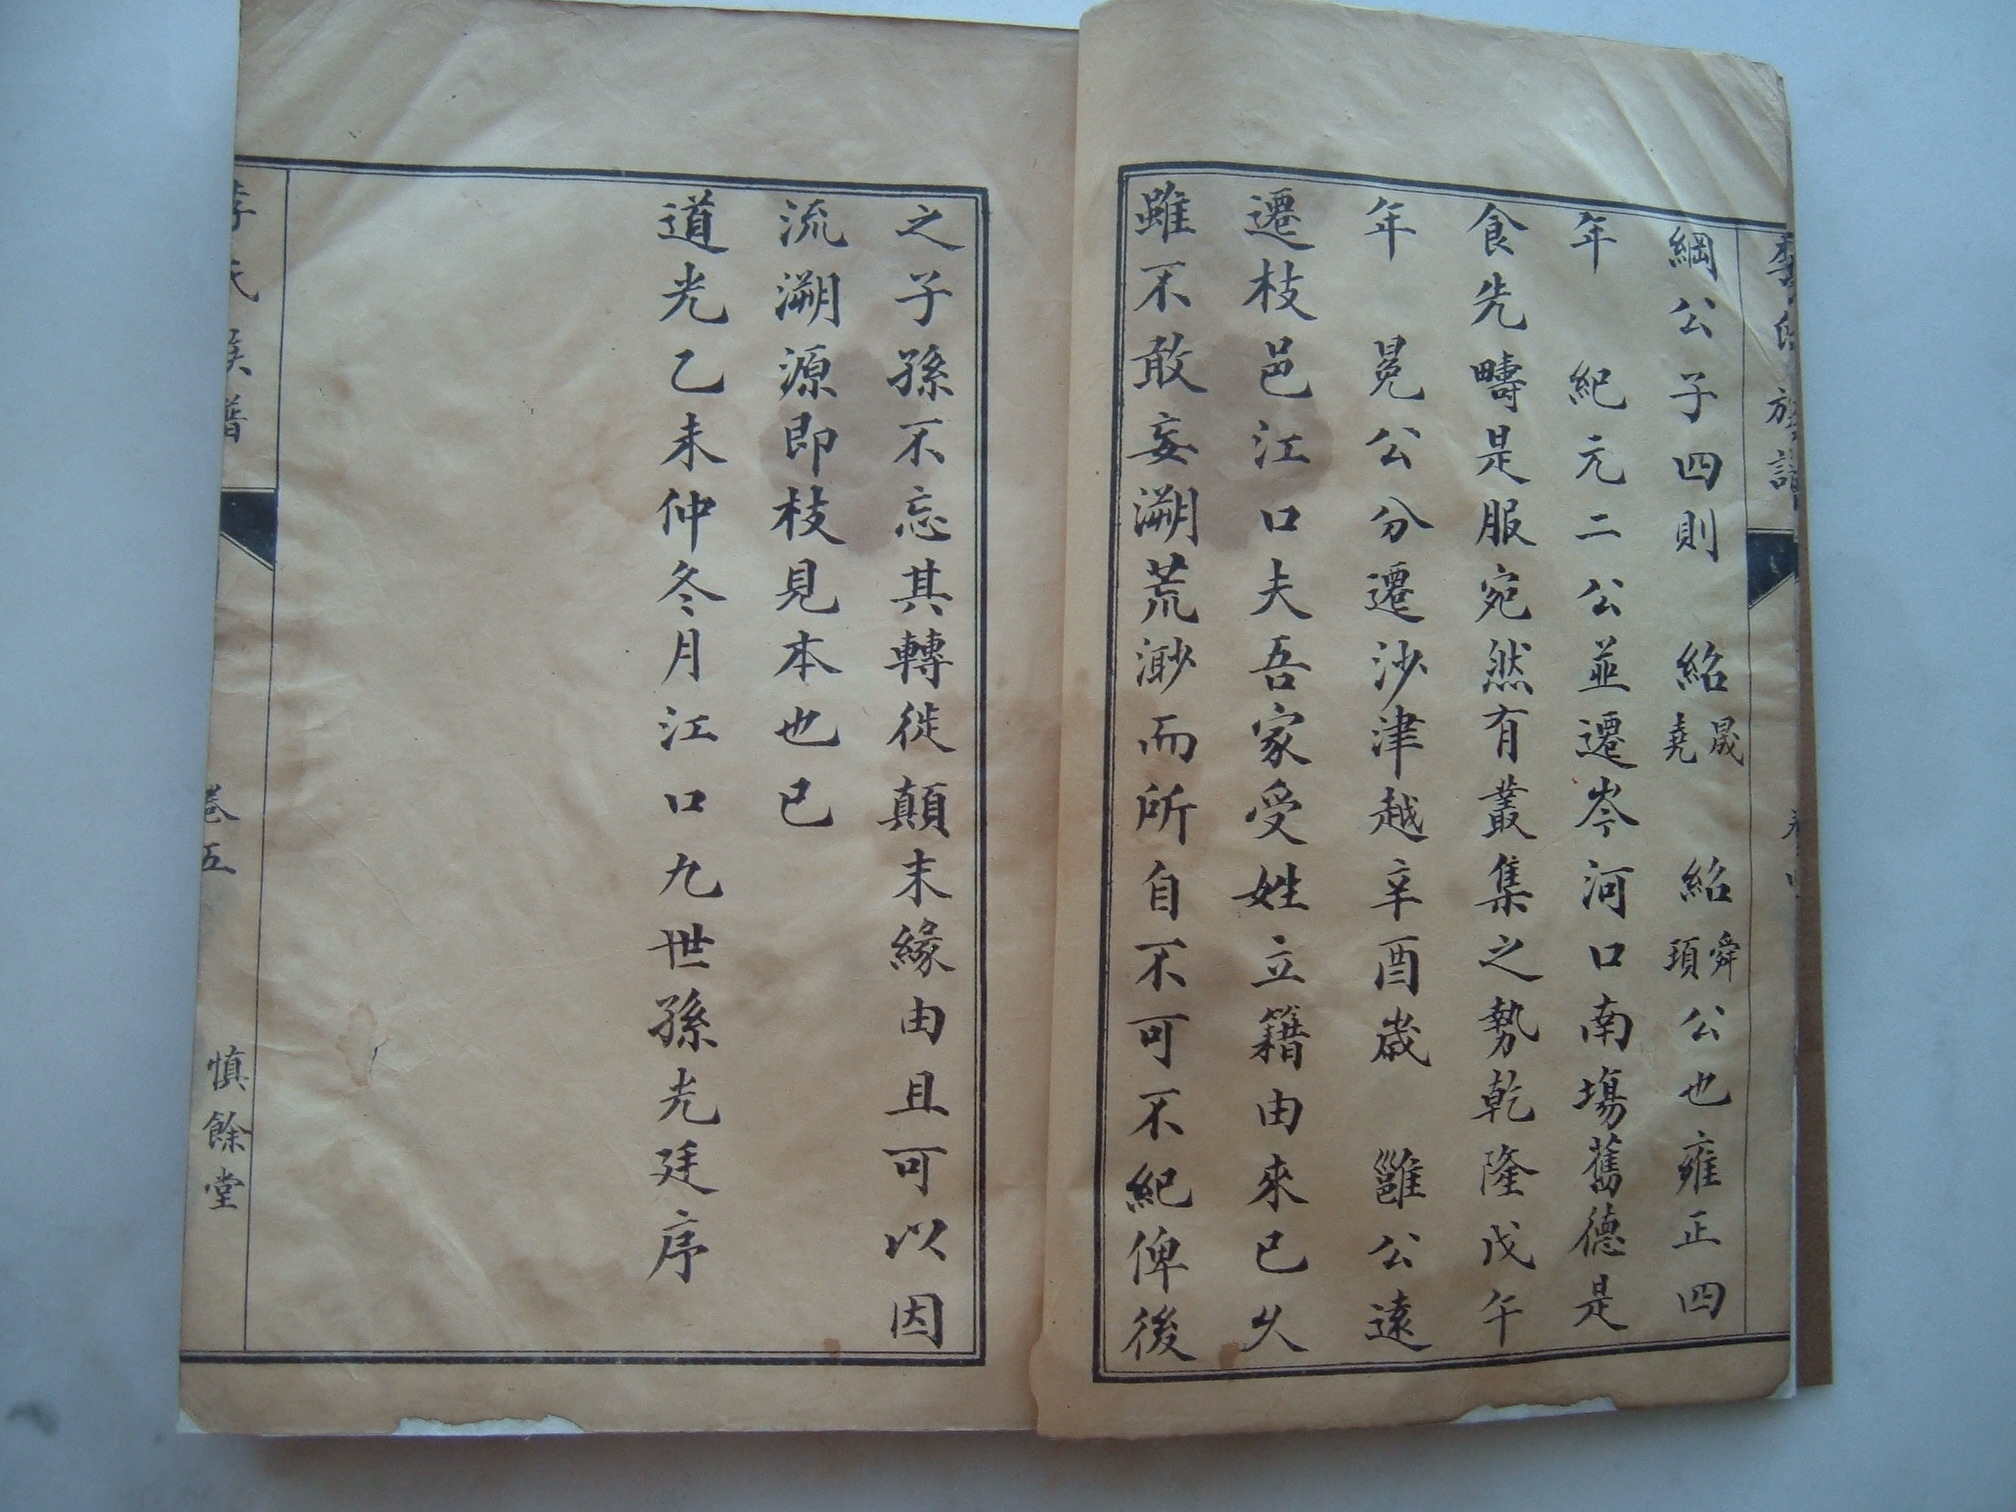 綱公子四則　紹晟堯　紹舜頊公也雍正四
年　紀元二公並遷岑河口南塲舊德是
食先疇是服宛然有叢集之勢乾隆戊午
年　冕公分遷沙津越辛酉歲　雝公遠
遷枝邑江口夫吾家受姓立籍由來已久
雖不敢妄溯荒渺而所自不可不紀俾後
之子孫不忘其轉徙顛末緣由且可以因
流溯源即枝見本也已
道光乙未仲冬月江口九世孫光廷序
氏族譜
卷五
慎餘堂